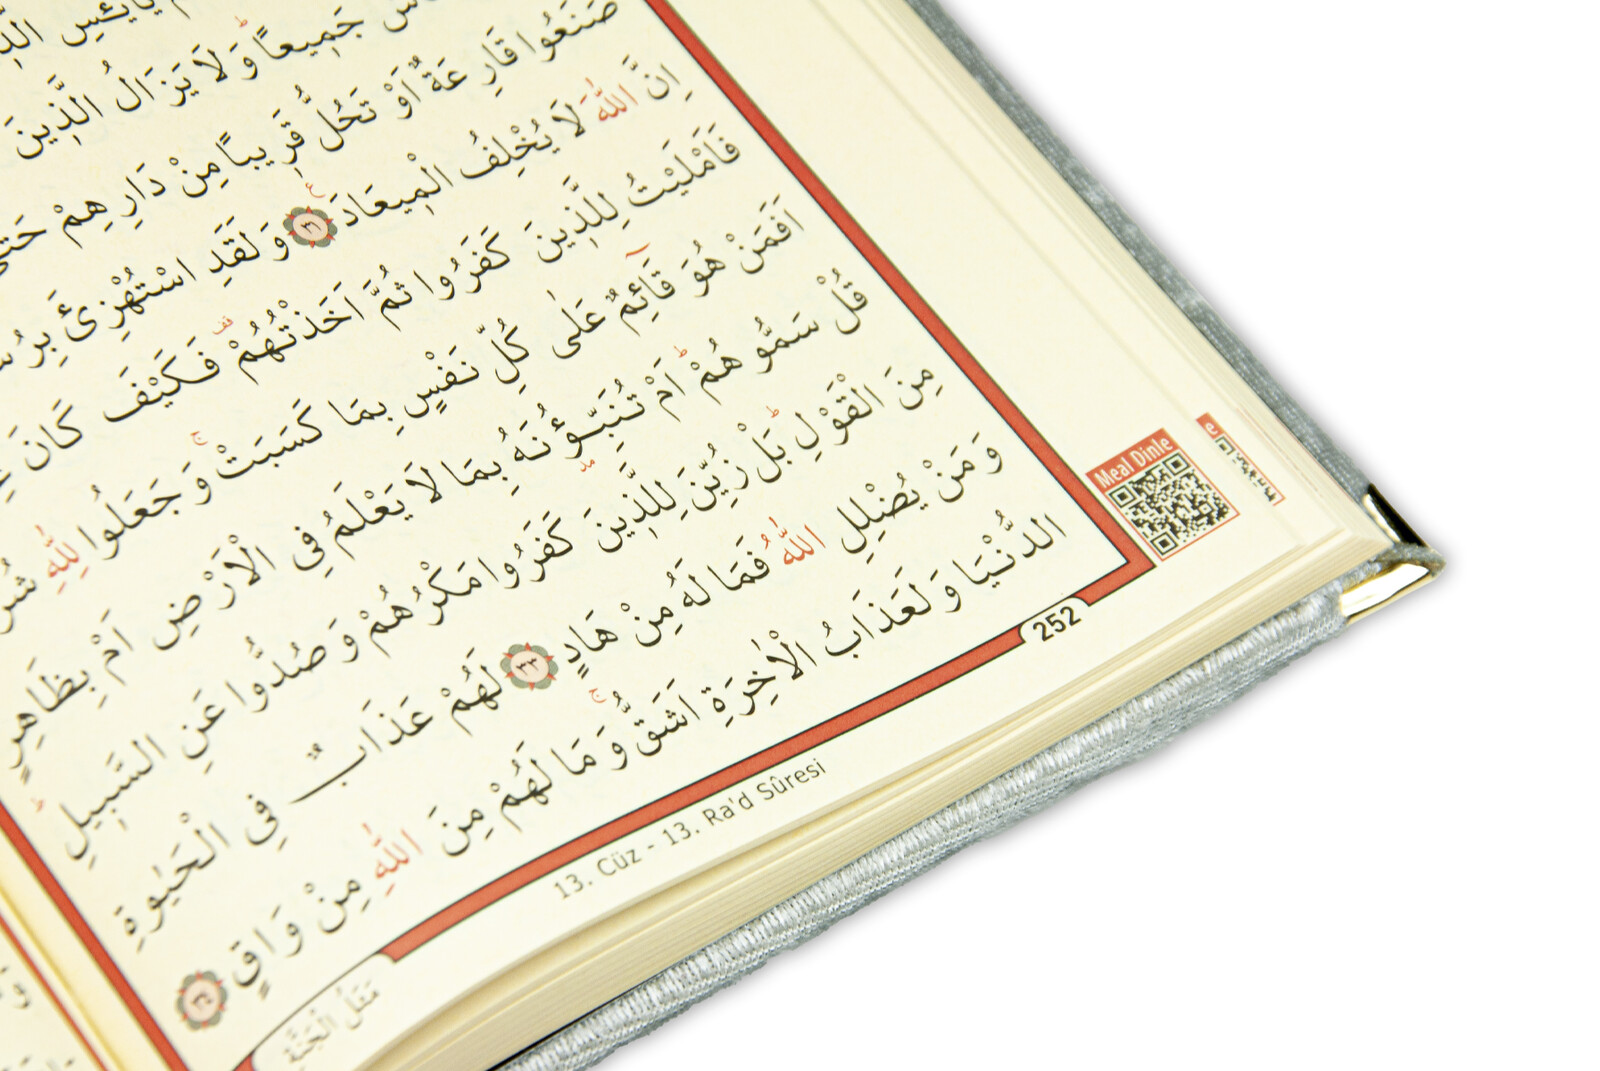 جَمِيعًاۜ وَلَا يَزَالُ الَّذِينَ
صَنَعُوا قَارِعَةٌ اَوْ تَحُلُّ قَرِيبًا مِنْ دَارِهِمْ
اِنَّ اللّٰهَ لَا يُخْلِفُ الْمِيعَادَ ﴿٣١﴾ وَلَقَدِ اسْتُهْزِئَ
فَاَمْلَيْتُ لِلَّذِينَ كَفَرُوا ثُمَّ اَخَذْتُهُمْ فَكَيْفَ كَانَ
اَفَمَنْ هُوَ قَٓائِمٌ عَلٰى كُلِّ نَفْسٍ بِمَا كَسَبَتْۚ وَجَعَلُوا لِلّٰهِ
قُلْ سَمُّوهُمْۜ اَمْ تُنَبِّؤُنَهُ بِمَا لَا يَعْلَمُ فِي الْاَرْضِ اَمْ بِظَاهِرٍ
مِنَ الْقَوْلِۜ بَلْ زُيِّنَ لِلَّذِينَ كَفَرُوا مَكْرُهُمْ وَصُدُّوا عَنِ السَّبِيلِۜ
وَمَنْ يُضْلِلِ اللّٰهُ فَمَا لَهُ مِنْ هَادٍ ﴿٣٣﴾ لَهُمْ عَذَابٌ فِي الْحَيٰوةِ
الدُّنْيَا وَلَعَذَابُ الْاٰخِرَةِ اَشَقُّۚ وَمَا لَهُمْ مِنَ اللّٰهِ مِنْ وَاقٍ ﴿٣٤﴾
مَثَلُ الْجَنَّةِ
252
13. Cüz - 13. Ra'd Sûresi
Meal Dinle
e